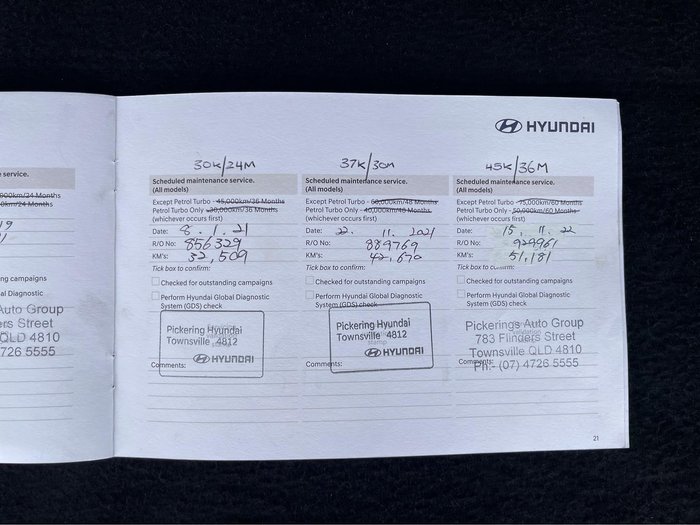 HYUNDAI
e service.
000km/24 Months
0km/24 Months
19
ng campaigns
Diagnostic
Auto Group
ers Street
QLD 4810
726 5555
30K/24M
Scheduled maintenance service.
(All models)
Except Petrol Turbo - 45,000km/36 Months
Petrol Turbo Only - 30,000km/36 Months
(whichever occurs first)
Date: 8.1.21
R/O No: 856329
KM's: 32,509
Tick box to confirm:
Checked for outstanding campaigns
Perform Hyundai Global Diagnostic
System (GDS) check
Pickering Hyundai
Townsville 4812
HYUNDAI
Comments:
37K/30M
Scheduled maintenance service.
(All models)
Except Petrol Turbo - 60,000km/48 Months
Petrol Turbo Only - 40,000km/48 Months
(whichever occurs first)
Date: 22. 11. 2021
R/O No: 889769
KM's: 42,670
Tick box to confirm:
Checked for outstanding campaigns
Perform Hyundai Global Diagnostic
System (GDS) check
Pickering Hyundai
Townsville 4812
HYUNDAI
Comments:
45K/36M
Scheduled maintenance service.
(All models)
Except Petrol Turbo - 75,000km/60 Months
Petrol Turbo Only - 50,000km/60 Months
(whichever occurs first)
Date: 15. 11. 22
R/O No: 929961
KM's: 51,181
Tick box to confirm:
Checked for outstanding campaigns
Perform Hyundai Global Diagnostic
System (GDS) check
Pickerings Auto Group
783 Flinders Street
Townsville QLD 4810
Comments:
Ph:- (07) 4726 5555
21